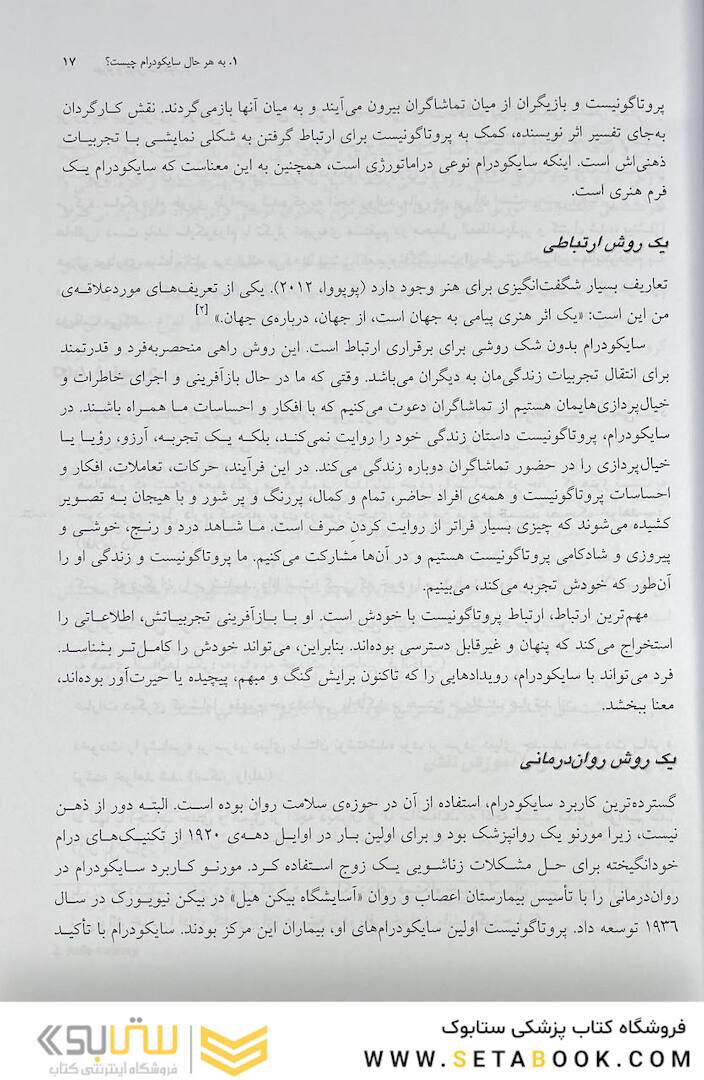 ۱. به هر حال سایکودرام چیست؟ ۱۷
پروتاگونیست و بازیگران از میان تماشاگران بیرون می‌آیند و به میان آنها بازمی‌گردند. نقش کارگردان
به‌جای تفسیر اثر نویسنده، کمک به پروتاگونیست برای ارتباط گرفتن به شکلی نمایشی با تجربیات
ذهنی‌اش است. اینکه سایکودرام نوعی دراماتورژی است، همچنین به این معناست که سایکودرام یک
فرم هنری است.
یک روش ارتباطی
تعاریف بسیار شگفت‌انگیزی برای هنر وجود دارد (پوپووا، ۲۰۱۲). یکی از تعریف‌های موردعلاقه‌ی
من این است: «یک اثر هنری پیامی به جهان است، از جهان، درباره‌ی جهان.» [۲]
سایکودرام بدون شک روشی برای برقراری ارتباط است. این روش راهی منحصربه‌فرد و قدرتمند
برای انتقال تجربیات زندگی‌مان به دیگران می‌باشد. وقتی که ما در حال بازآفرینی و اجرای خاطرات و
خیال‌پردازی‌هایمان هستیم از تماشاگران دعوت می‌کنیم که با افکار و احساسات ما همراه باشند. در
سایکودرام، پروتاگونیست داستان زندگی خود را روایت نمی‌کند، بلکه یک تجربه، آرزو، رؤیا یا
خیال‌پردازی را در حضور تماشاگران دوباره زندگی می‌کند. در این فرآیند، حرکات، تعاملات، افکار و
احساسات پروتاگونیست و همه‌ی افراد حاضر، تمام و کمال، پررنگ و پر شور و با هیجان به تصویر
کشیده می‌شوند که چیزی بسیار فراتر از روایت کردنِ صرف است. ما شاهد درد و رنج، خوشی و
پیروزی و شادکامی پروتاگونیست هستیم و در آن‌ها مشارکت می‌کنیم. ما پروتاگونیست و زندگی او را
آن‌طور که خودش تجربه می‌کند، می‌بینیم.
مهم‌ترین ارتباط، ارتباط پروتاگونیست با خودش است. او با بازآفرینی تجربیاتش، اطلاعاتی را
استخراج می‌کند که پنهان و غیرقابل دسترسی بوده‌اند. بنابراین، می‌تواند خودش را کامل‌تر بشناسد.
فرد می‌تواند با سایکودرام، رویدادهایی را که تاکنون برایش گنگ و مبهم، پیچیده یا حیرت‌آور بوده‌اند،
معنا ببخشد.
یک روش روان‌درمانی
گسترده‌ترین کاربرد سایکودرام، استفاده از آن در حوزه‌ی سلامت روان بوده است. البته دور از ذهن
نیست، زیرا مورنو یک روانپزشک بود و برای اولین بار در اوایل دهه‌ی ۱۹۲۰ از تکنیک‌های درام
خودانگیخته برای حل مشکلات زناشویی یک زوج استفاده کرد. مورنو کاربرد سایکودرام در
روان‌درمانی را با تأسیس بیمارستان اعصاب و روان «آسایشگاه بیکن هیل» در بیکن نیویورک در سال
۱۹۳۶ توسعه داد. پروتاگونیست اولین سایکودرام‌های او، بیماران این مرکز بودند. سایکودرام با تأکید
فروشگاه کتاب پزشکی ستابوک
WWW.SETABOOK.COM
ستابوک
فروشگاه اینترنتی کتاب